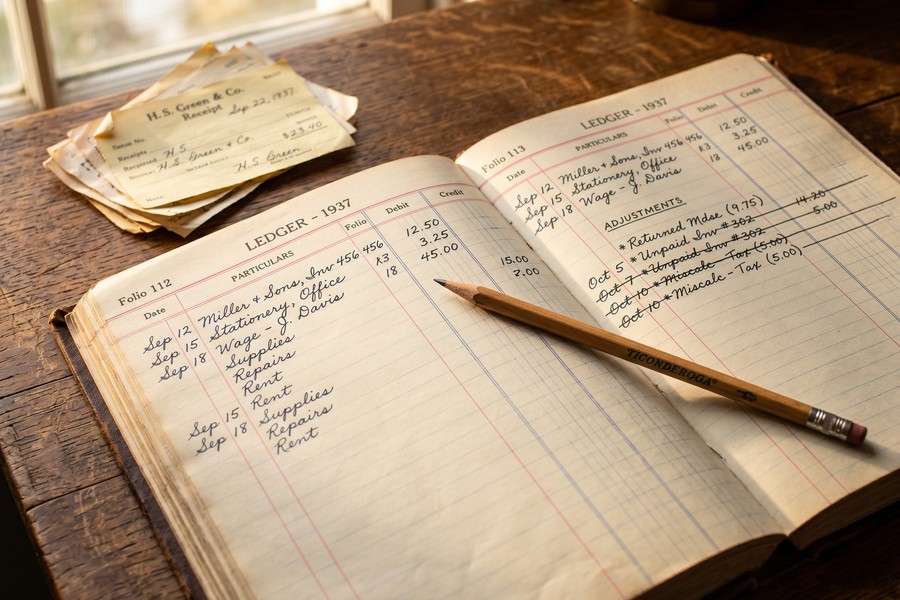 H.S. Green & Co.
Receipt Sep 22, 1937
H.S.
$23.40
H.S. Green & Co.
H.S. Green
LEDGER – 1937
Folio 112
Date PARTICULARS Folio Debit Credit
Sep 12 Miller & Sons, Inv 456 456 12.50
Sep 15 Stationery, Office 13 3.25
Sep 18 Wage – J. Davis 18 45.00
Supplies 15.00
Repairs 2.00
Rent
Sep 15 Rent
Sep 18 Supplies
Repairs
Rent
LEDGER – 1937
Folio 113
Date PARTICULARS Folio Debit Credit
Sep 12 Miller & Sons, Inv 456 456 12.50
Sep 15 Stationery, Office 13 3.25
Sep 18 Wage – J. Davis 18 45.00
ADJUSTMENTS
* Returned Mdse (9.75)
Oct 5 * Unpaid Inv #302 14.20
Oct 7 * Unpaid Inv #302 5.00
Oct 10 * Miscalc – Tax (5.00)
Oct 10 * Miscalc – Tax (5.00)
TICONDEROGA